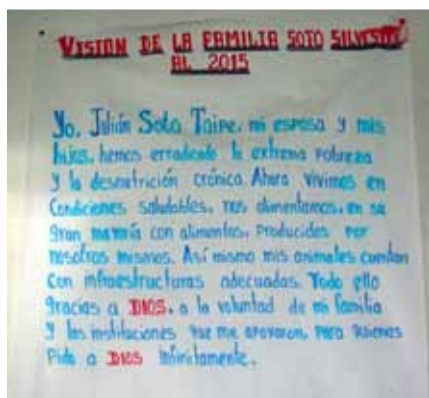 VISION DE LA FAMILIA SOTO SILVESTRE
AL 2015
Yo, Julián Soto Taipe, mi esposa y mis
hijos, hemos erradicado la extrema pobreza
y la desnutrición crónica. Ahora vivimos en
Condiciones saludables, nos alimentamos, en su
gran mayoría con alimentos, Producidos por
nosotros mismos. Así mismo mis animales cuentan
Con infraestructuras adecuadas. Todo ello
gracias a DIOS, a la voluntad de mi familia
y las instituciones que me apoyaron, para quienes
Pido a DIOS Infinitamente.